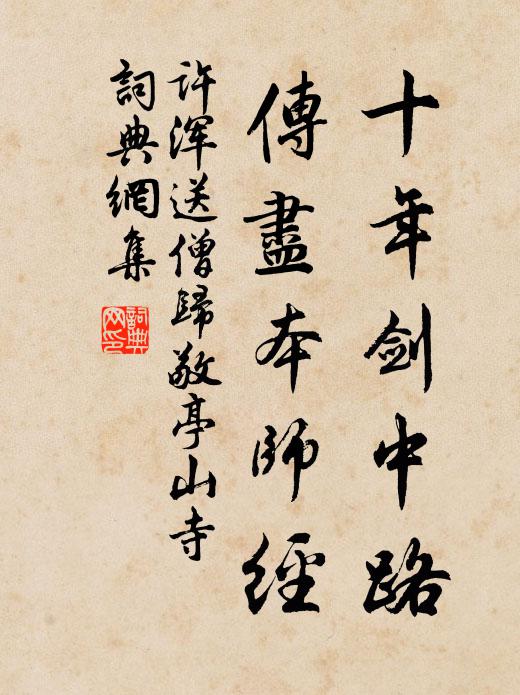 十年劍中路
傳盡本師經
許渾送僧歸敬亭山寺
詞典網集
詞典網印